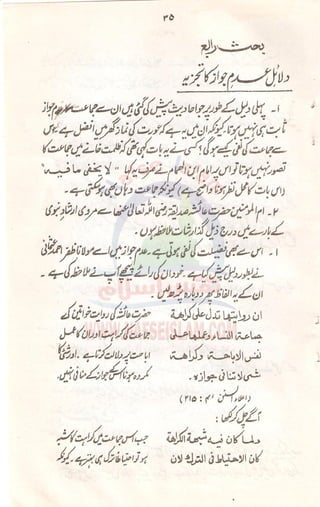 ۳۵
بحث رابع
دلائل عدم جواز کا تجزیہ
۱۔ پہلی دلیل کے طور پر جو احادیث پیش کی گئی ہیں ان سے جماعت کا عدم جواز
ثابت ہی نہیں ہوتا کیونکہ ان میں یہ ہے کہ عورت کی نماز گھر میں افضل ہے یوں
سے جماعت کی نفی کیسے ہوگی؟ کسی نے یہ بات کہی تھی کہ ظلمت خانے میں جماعت کا
تصور نہیں ہوتا تو اس پر امام ابن الہمام نے صرف یہ کہا "لا یخفی ما فیہ"
(اس بات کا محل نظر ہونا واضح ہے) کیونکہ جماعت وہاں بھی ہو سکتی ہے۔
۲۔ ام المومنین حضرت عائشہ صدیقہ رضی اللہ تعالیٰ عنہا سے مروی ارشاد نبوی
کے بارے میں درج ذیل گذارشات ملاحظہ ہوں۔
۱۔ اس سے بھی فضیلت کی نفی ہوتی ہے۔ عدم جواز میں اسے مولانا ظفر احمد عثمانی
نے بطور دلیل پیش کیا ہے۔ خود ان کی رائے پیچھے آپ نے ملاحظہ کی ہے۔
ان کے یہ الفاظ پھر دوبارہ پڑھ لیں۔
ان روایتها تدل علی کراهة حضرت عائشہ کی روایت خواتین کے
جماعة النساء وعملها علی جماعت کی کراہت اور ان کا عمل
نفس الاباحة وکراهة اباحت پر دلالت کرتا ہے۔ اور شئی کا
شی لا تنافی جوازہ۔ مکروہ ہونا اس کے جواز کے منافی نہیں
(اعلاء السنن ۴: ۲۱۵)
آگے چل کر لکھا:
ولما کان فیه شبهة الکراهة جب اس جماعت میں کراہت کا شبہ
کان الاحتیاط فی الترك لان ہو تو احتیاطاً ترک ہی بہتر ہے۔ کیونکہ
نفس اسلام
WWW.NAFSEISLAM.COM